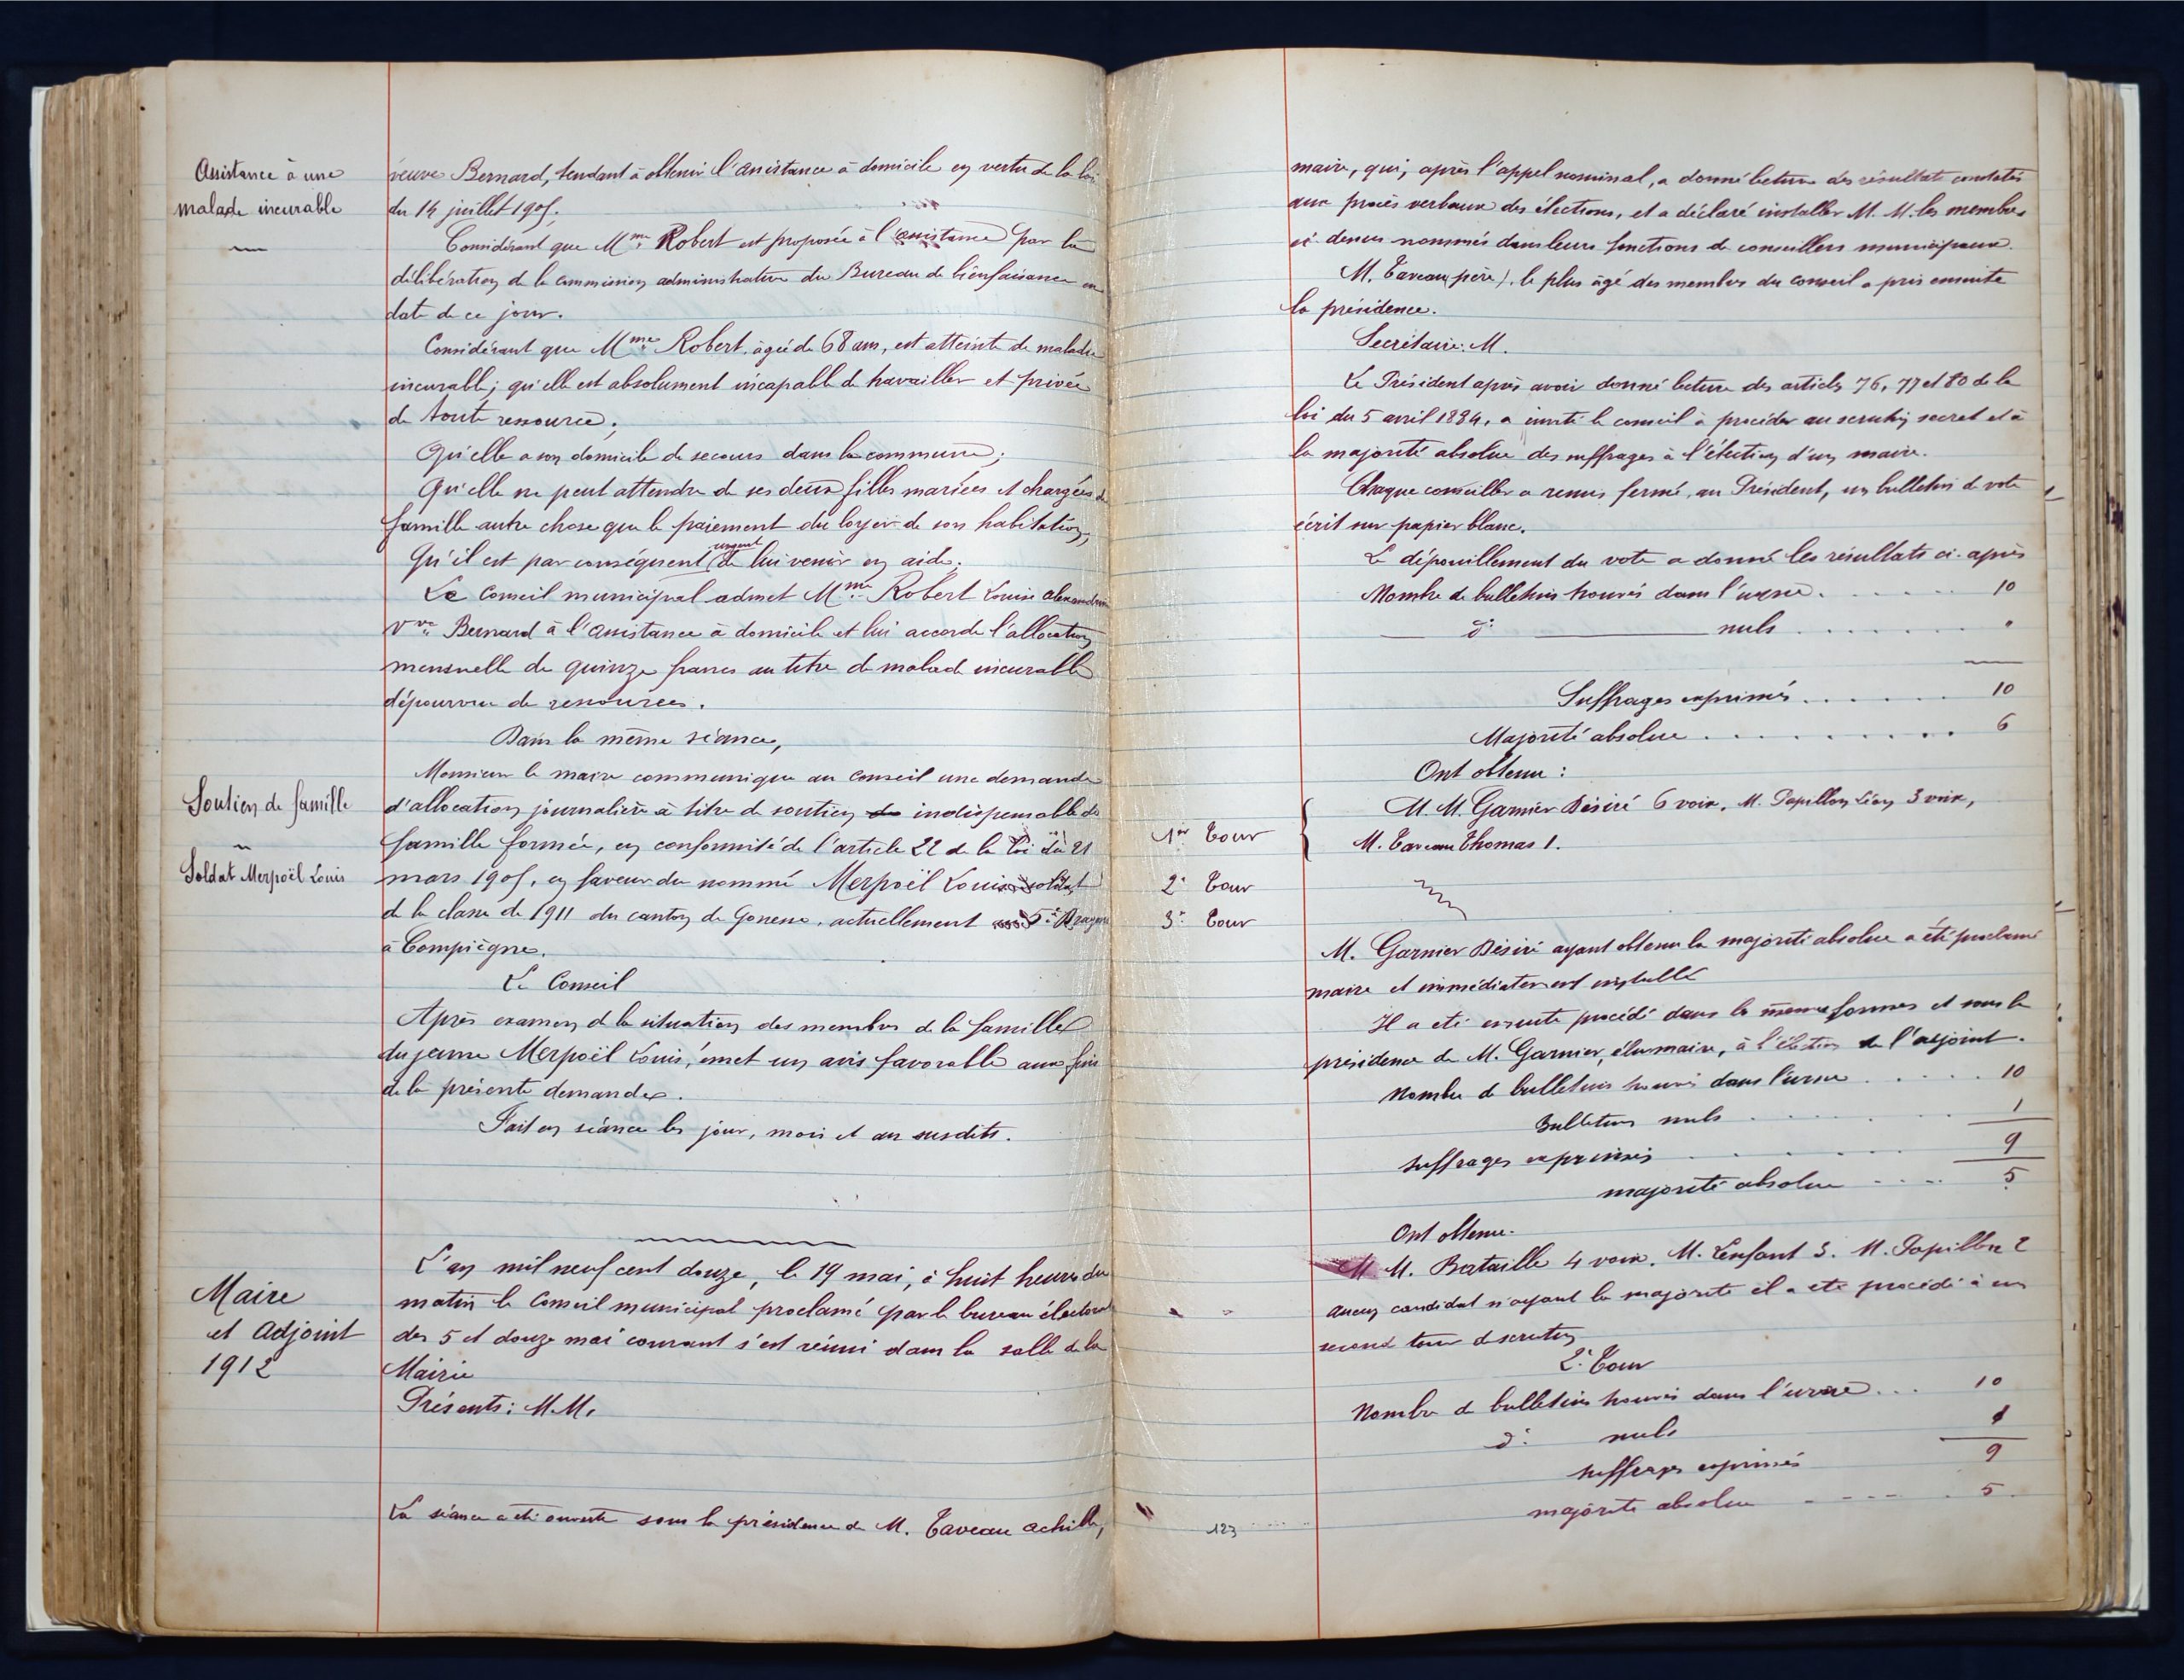 Assistance à une
malade incurable
veuve Bernard, tendant à obtenir l'assistance à domicile en vertu de la loi
du 14 juillet 1905;
Considérant que Mme Robert est proposée à l'assistance par la
délibération de la commission administrative du Bureau de bienfaisance en
date de ce jour.
Considérant que Mme Robert, agée de 68 ans, est atteinte de maladie
incurable; qu'elle est absolument incapable de travailler et privée
de toute ressource;
Qu'elle a son domicile de secours dans la commune;
Qu'elle ne peut attendre de ses deux filles mariées et chargées de
famille autre chose que le paiement du loyer de son habitation;
Qu'il est par conséquent urgent de lui venir en aide.
Le Conseil municipal admet Mme Robert Louise Alexandrine
Vve Bernard à l'assistance à domicile et lui accorde l'allocation
mensuelle de quinze francs au titre de malade incurable
dépourvue de ressources.
Dans la même séance,
Soutien de famille
Soldat Merpoël Louis
Monsieur le maire communique au Conseil une demande
d'allocation journalière à titre de soutien de indispensable de
famille formée, en conformité de l'article 22 de la loi du 21
mars 1905, en faveur du nommé Merpoël Louis soldat
de la classe de 1911 du canton de Gonesse, actuellement 5e Dragons
à Compiègne.
Le Conseil
Après examen de la situation des membres de la famille
du jeune Merpoël Louis, émet un avis favorable aux fins
de la présente demande.
Fait en séance les jour, mois et an susdits.
Maire
et Adjoint
1912
L'an mil neuf cent douze, le 19 mai, à huit heures du
matin le Conseil municipal proclamé par le bureau électoral
des 5 et douze mai courant s'est réuni dans la salle de la
Mairie
Présents: M.M.
La séance a été ouverte sous la présidence de M. Taveau Achille,
maire, qui, après l'appel nominal, a donné lecture des résultats constatés
aux procès verbaux des élections, et a déclaré installer M. M. les membres
ci-dessus nommés dans leurs fonctions de conseillers municipaux.
M. Taveau (père), le plus âgé des membres du conseil a pris ensuite
la présidence.
Secrétaire: M.
Le Président après avoir donné lecture des articles 76, 77 et 80 de la
loi du 5 avril 1884, a invité le conseil à procéder au scrutin secret et à
la majorité absolue des suffrages à l'élection d'un maire.
Chaque conseiller a remis fermé, au Président, un bulletin de vote
écrit sur papier blanc.
Le dépouillement du vote a donné les résultats ci-après
Nombre de bulletins trouvés dans l'urne . . . . . . . 10
do nuls . . . . . . . "
Suffrages exprimés . . . . . . . 10
Majorité absolue . . . . . . . . . . 6
Ont obtenu:
1er Tour
M. M. Garnier Désiré 6 voix, M. Papillon Léon 3 voix,
M. Taveau Thomas 1.
2e Tour
3e Tour
M. Garnier Désiré ayant obtenu la majorité absolue a été proclamé
maire et immédiatement installé
Il a été ensuite procédé dans les mêmes formes et sous la
présidence de M. Garnier, élu maire, à l'élection de l'adjoint.
Nombre de bulletins trouvés dans l'urne . . . . . 10
Bulletins nuls . . . . . 1
Suffrages exprimés . . . . . 9
majorité absolue . . . . 5
Ont obtenu.
M M. Bataille 4 voix. M. Lenfant 3. M. Papillon 2
Aucun candidat n'ayant la majorité il a été procédé à un
second tour de scrutin
2e Tour
Nombre de bulletins trouvés dans l'urne . . . 10
do nuls 1
Suffrages exprimés 9
majorité absolue . . . . . 5.
123